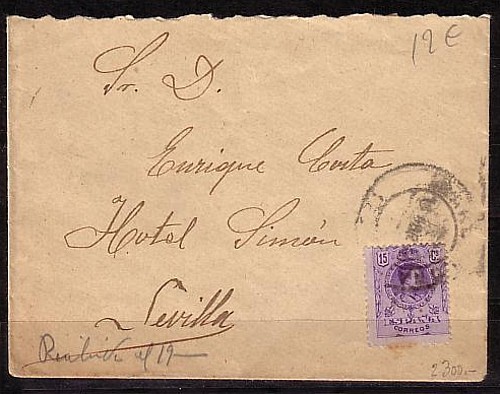 12 €
Sr. D.
Enrique Costa
Hotel Simón
Sevilla
15 Cs
ESPAÑA
CORREOS
el 19
2300.-